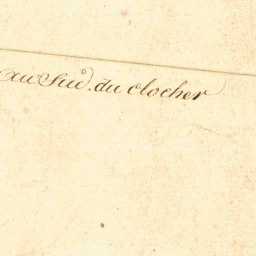 au Sud. du clocher